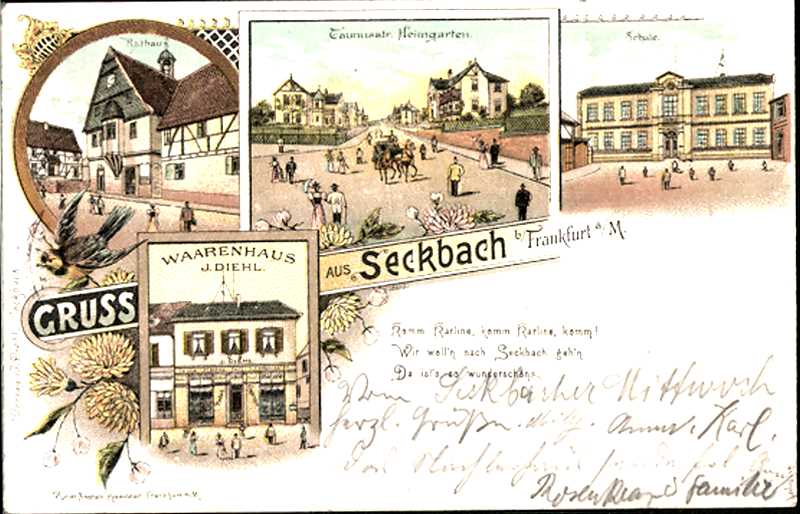 Rathaus
Taunusstr. Heimgarten.
Schule.
WAARENHAUS
J. DIEHL.
J. DIEHL
GRUSS AUS Seckbach b/ Frankfurt a/ M.
Komm Karline, komm Karline, komm!
Wir woll'n nach Seckbach geh'n
Da ist's so wunderschön.
Vom Seckbacher Mittwoch
herzl. Grüße
Karl.
Familie